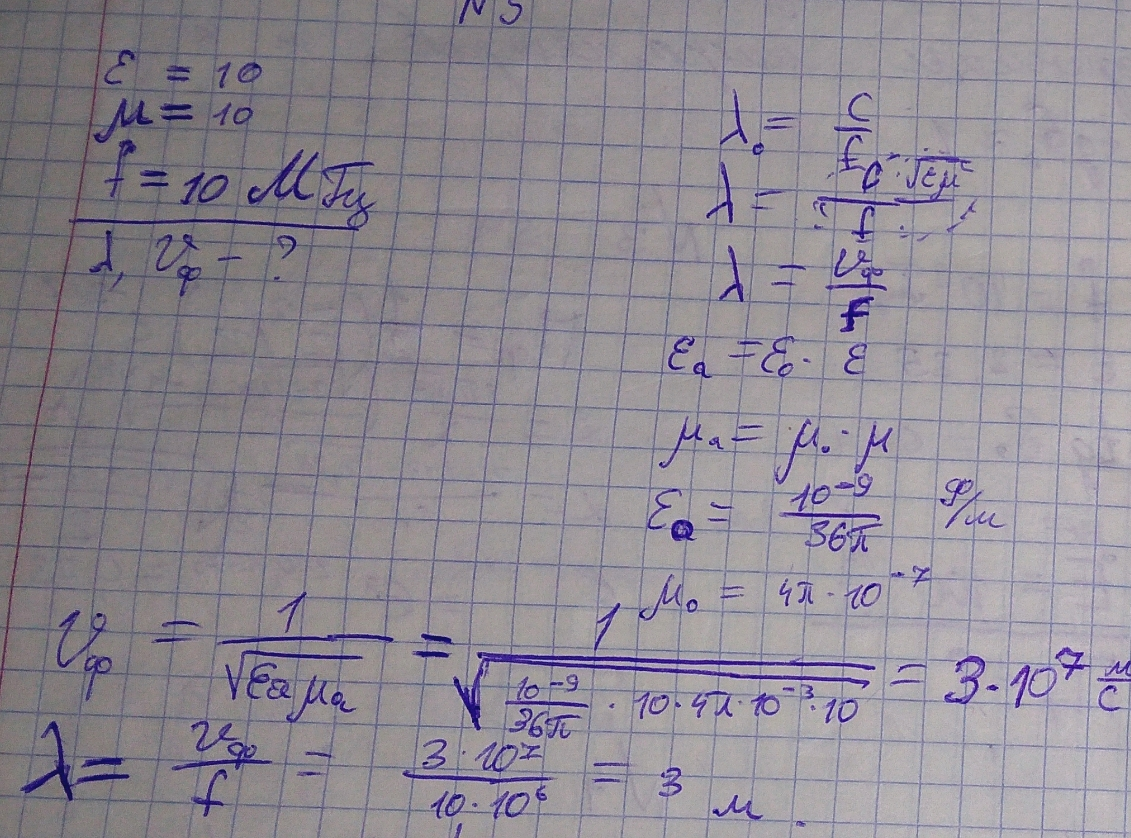 N5
ε = 10
μ = 10
f = 10 МГц
λ, vф - ?
λ₀ = c/f
λ = c·√εμ / f
λ = vф/f
εa = ε₀ · ε
μa = μ₀ · μ
ε₀ = 10⁻⁹/36π Ф/м
μ₀ = 4π · 10⁻⁷
vф = 1/√(εa μa) = 1/√(10⁻⁹/36π · 10 · 4π · 10⁻³ · 10) = 3 · 10⁷ м/с
λ = vф/f = 3 · 10⁷/10 · 10⁶ = 3 м